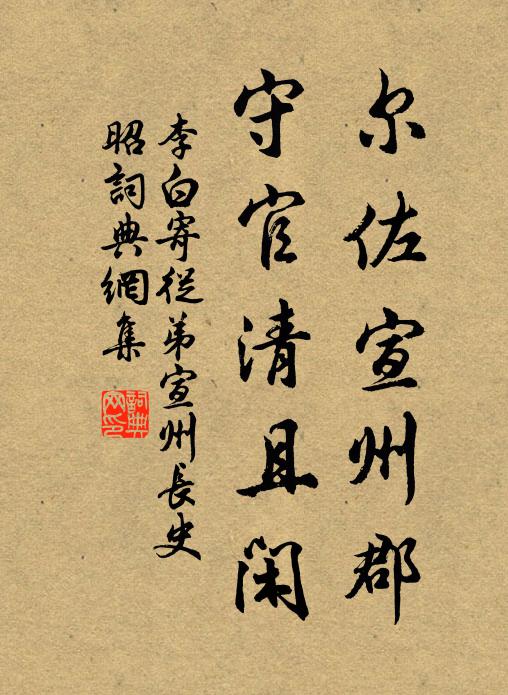 尔佐宣州郡
守官清且闲
李白寄從弟宣州長史
昭詞典網集
詞典網印